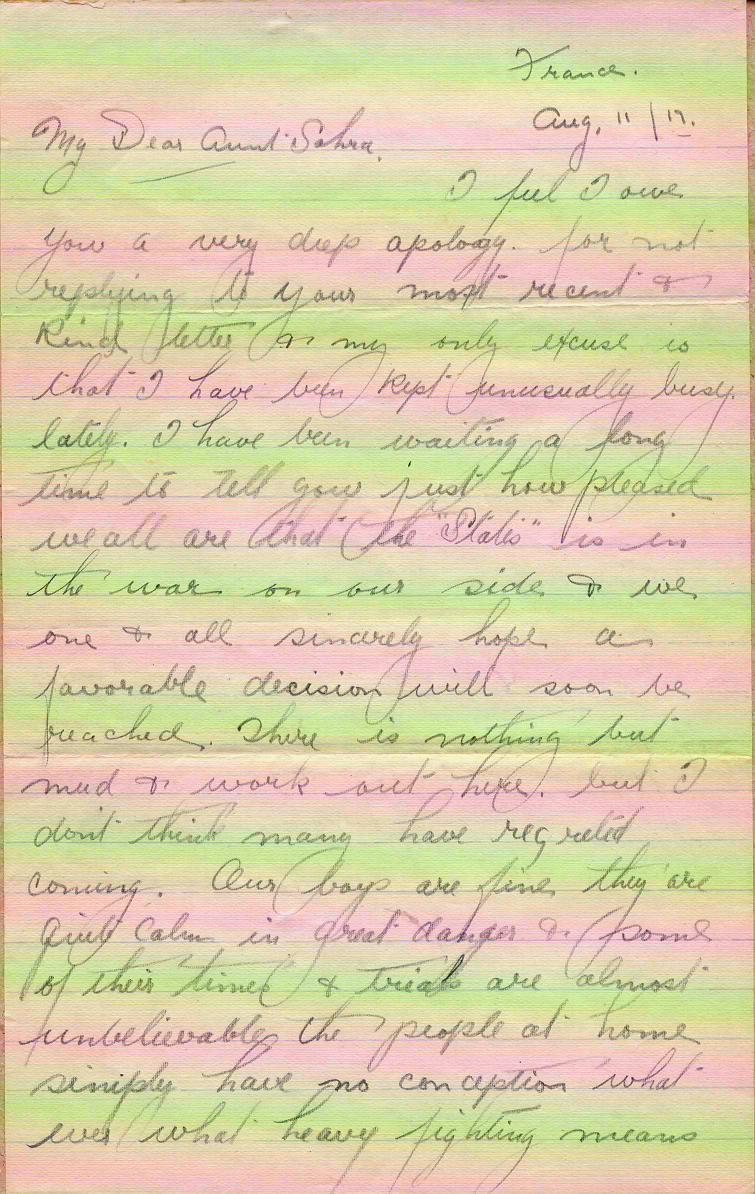 France.
Aug. 11/17.
My Dear Aunt Sahra,
I feel I owe
you a very deep apology. for not
replying to your most recent &
kind letter & my only excuse is
that I have been kept unusually busy.
lately. I have been waiting a long
time to tell you just how pleased
we all are that the "States" is in
the war on our side & we
one & all sincerely hope a
favorable decision will soon be
reached. There is nothing but
mud & work out here. but I
don't think many have regreted
coming. Our boys are fine they are
quite calm in great danger & some
of their "times" & trials are almost
unbelievable the people at home
simply have no conception what
ever what heavy fighting means